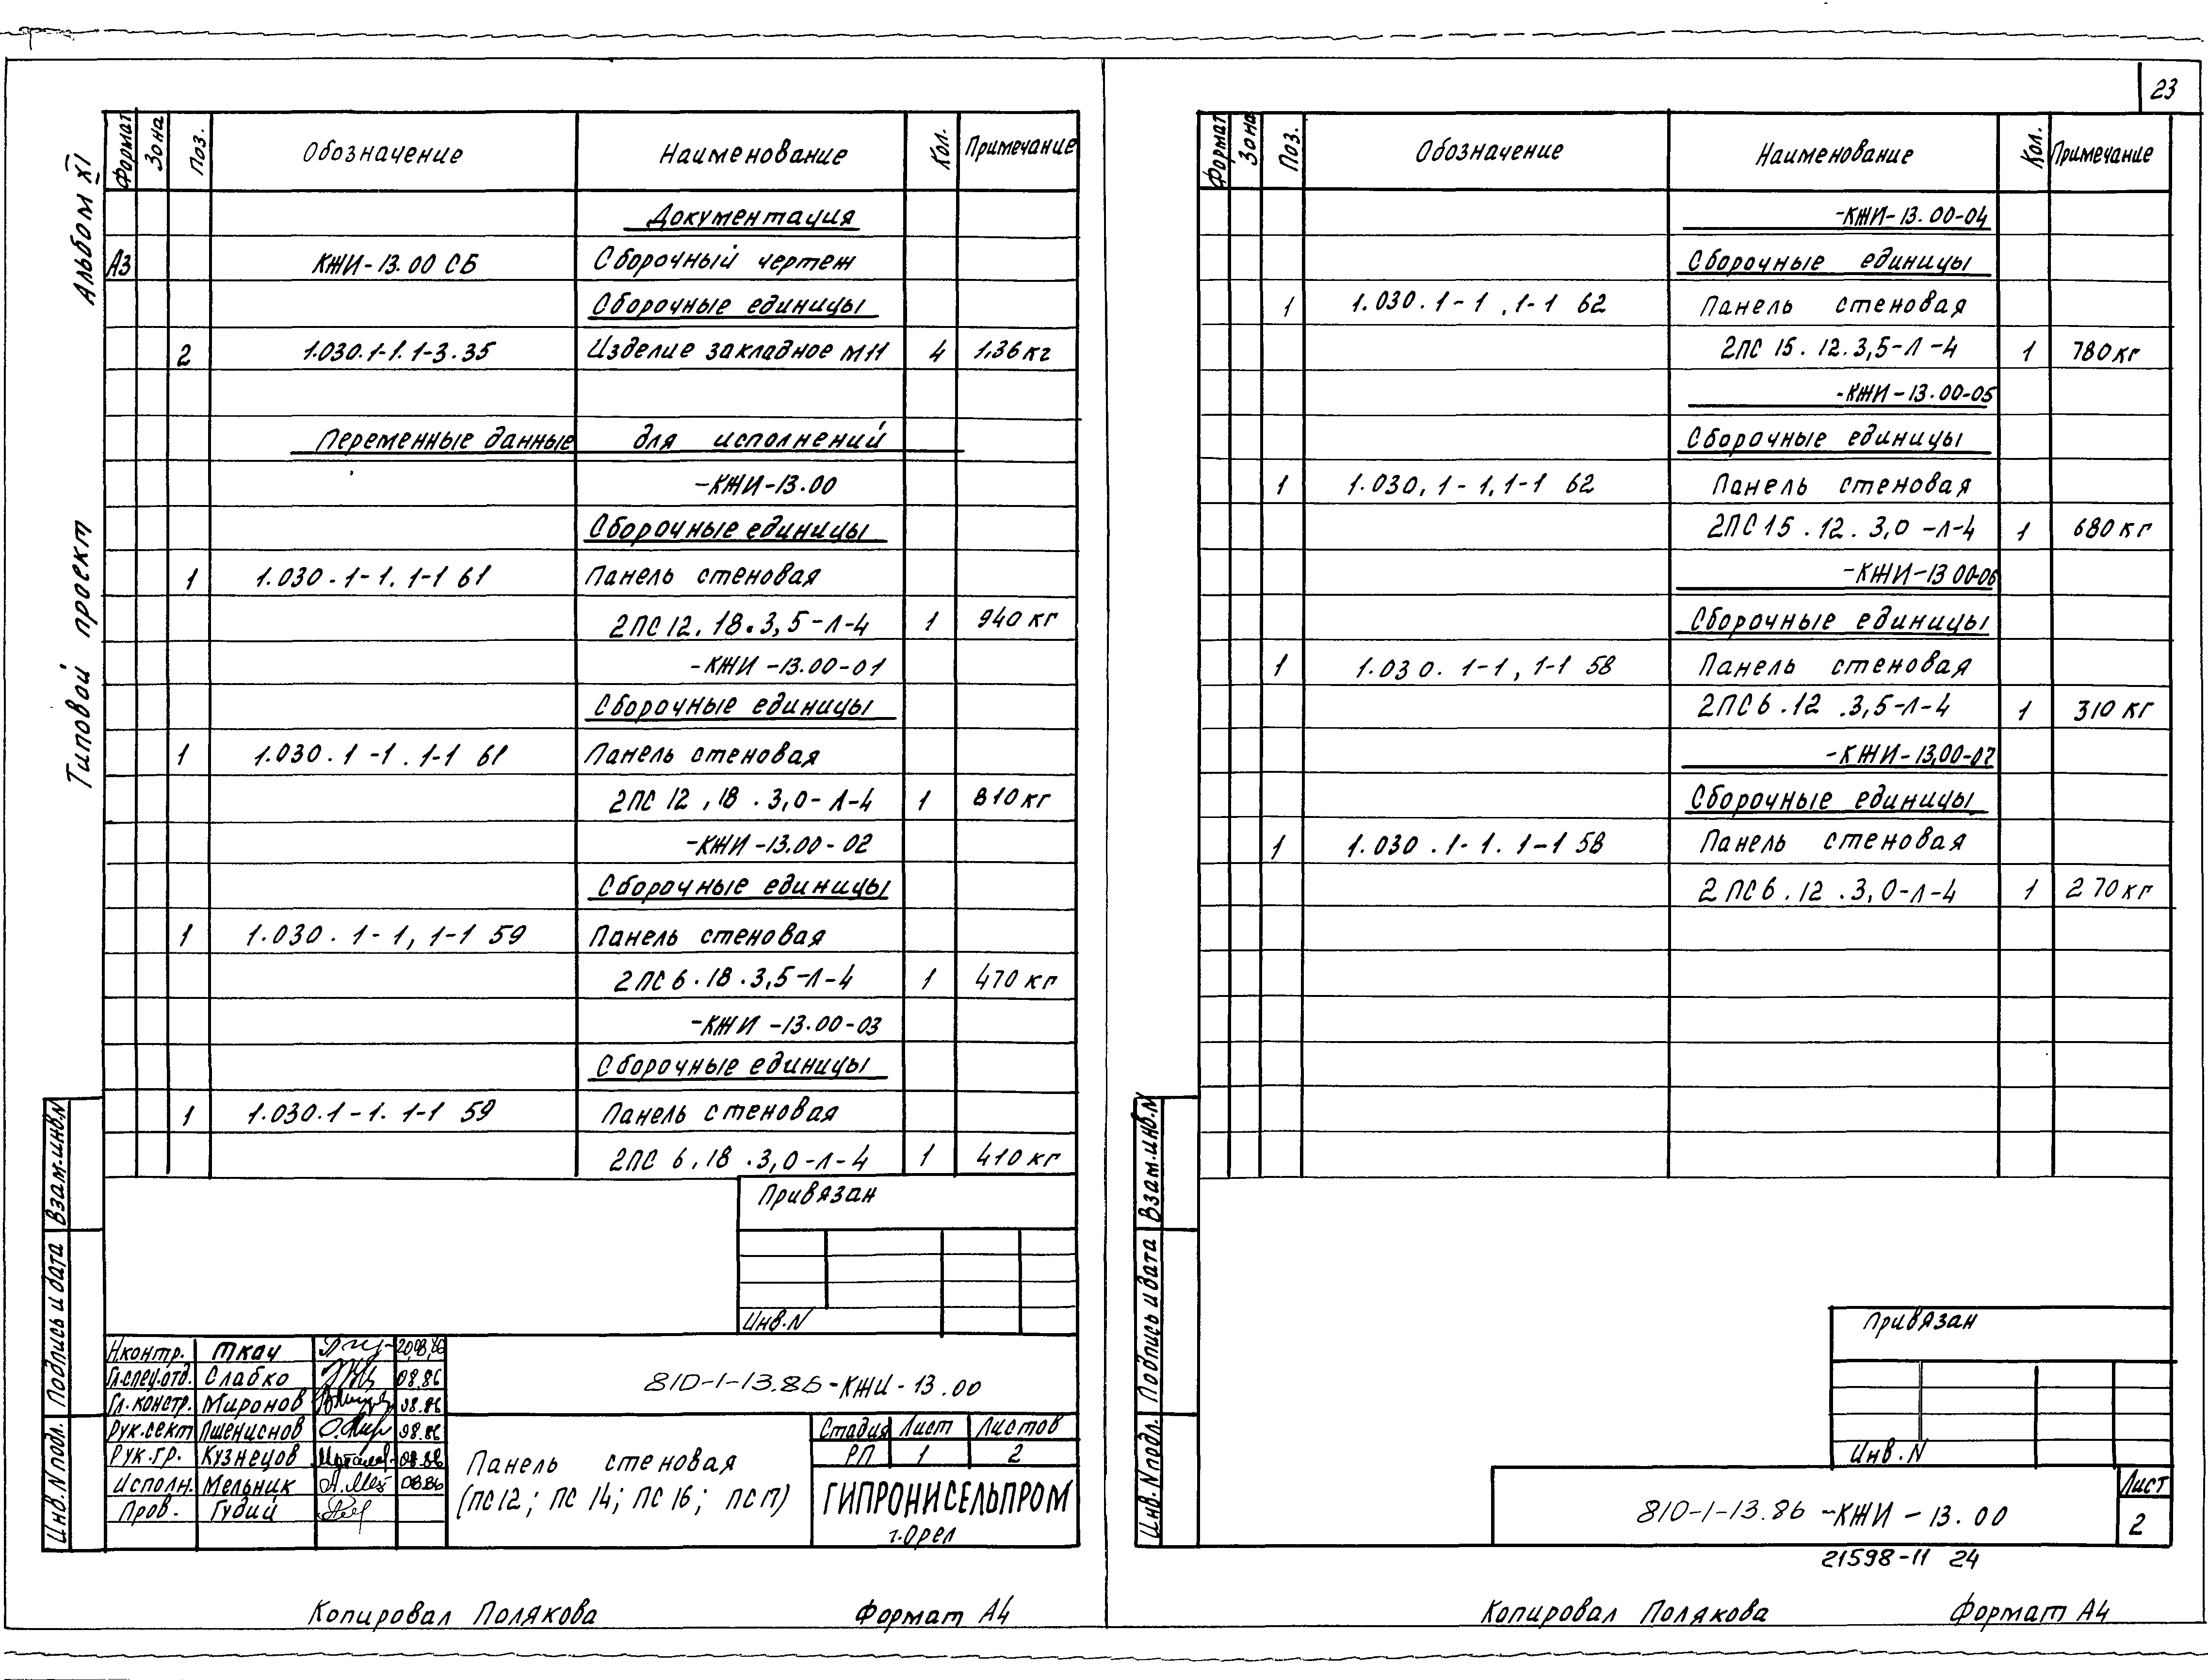 23
Альбом XI
Типовой проект
Формат Зона Поз. Обозначение Наименование Кол. Примечание
Документация
А3 КЖИ-13.00 СБ Сборочный чертеж
Сборочные единицы
2 1.030.1-1.1-3.35 Изделие закладное М11 4 1,36 кг
Переменные данные для исполнений
-КЖИ-13.00
Сборочные единицы
1 1.030.1-1.1-1 61 Панель стеновая
2ПС 12.18.3,5-Л-4 1 940 кг
-КЖИ-13.00-01
Сборочные единицы
1 1.030.1-1.1-1 61 Панель стеновая
2ПС 12,18.3,0-Л-4 1 810 кг
-КЖИ-13.00-02
Сборочные единицы
1 1.030.1-1,1-1 59 Панель стеновая
2ПС 6.18.3,5-Л-4 1 470 кг
-КЖИ-13.00-03
Сборочные единицы
1 1.030.1-1.1-1 59 Панель стеновая
2ПС 6,18.3,0-Л-4 1 410 кг
Привязан
Инв.N
Взам.инв.N
Подпись и дата
Инв.N подл.
Н.контр. Ткач 20.08.86
Гл.спец.отд. Слабко 08.86
Гл.констр. Миронов 08.86
Рук.сект Пшениснов 08.86
Рук.гр. Кузнецов 08.86
Исполн. Мельник 08.86
Пров. Гудий
810-1-13.86-КЖИ-13.00
Панель стеновая
(ПС12; ПС 14; ПС 16; ПС П)
Стадия Лист Листов
РП 1 2
ГИПРОНИСЕЛЬПРОМ
г.Орел
Копировал Полякова Формат А4
Формат Зона Поз. Обозначение Наименование Кол. Примечание
-КЖИ-13.00-04
Сборочные единицы
1 1.030.1-1,1-1 62 Панель стеновая
2ПС 15.12.3,5-Л-4 1 780 кг
-КЖИ-13.00-05
Сборочные единицы
1 1.030,1-1,1-1 62 Панель стеновая
2ПС 15.12.3,0-Л-4 1 680 кг
-КЖИ-13 00-06
Сборочные единицы
1 1.030.1-1,1-1 58 Панель стеновая
2ПС 6.12.3,5-Л-4 1 310 кг
-КЖИ-13,00-07
Сборочные единицы
1 1.030.1-1.1-1 58 Панель стеновая
2ПС 6.12.3,0-Л-4 1 270 кг
Взам.инв.N
Подпись и дата
Инв.N подл.
Привязан
Инв.N
810-1-13.86-КЖИ-13.00
Лист
2
21598-11 24
Копировал Полякова Формат А4